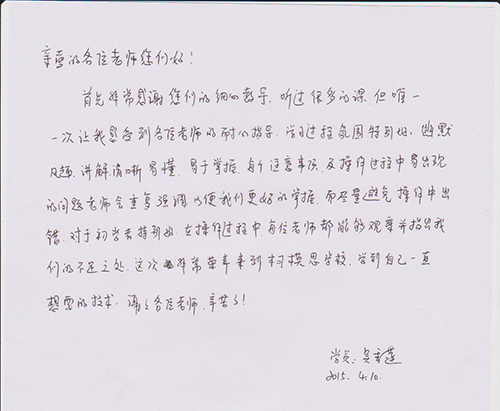 亲爱的各位老师您们好！
首先非常感谢您们的细心教导，听过很多的课，但唯一
一次让我感受到各位老师的耐心指导，学习过程氛围特别好，幽默
风趣，讲解清晰易懂，易于掌握，每个注意事项，及操作过程中易出现
的问题老师会重复强调，以便我们更好的掌握，而尽量避免操作中出
错，对于初学者特别好，在操作过程中，每位老师都能够观察并指出我
们的不足之处，这次非常荣幸来到柯模思学校，学到自己一直
想要的技术，谢谢各位老师，辛苦了！
学员：吴莲
2015. 4.10.